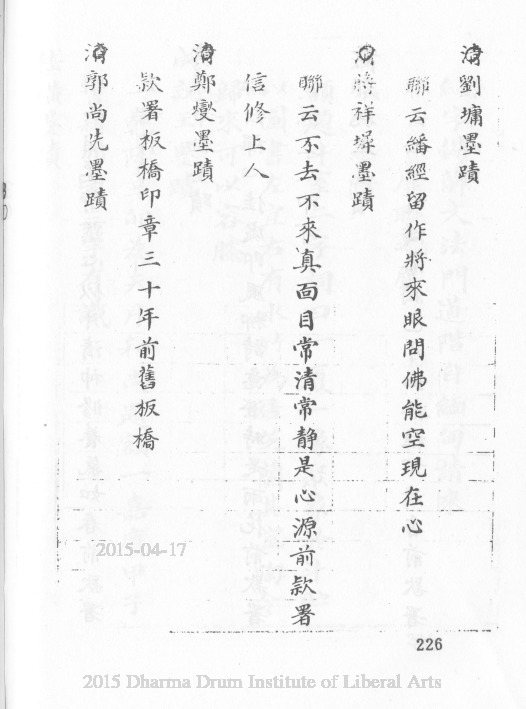 清劉墉墨蹟
聯云繙經留作將來眼問佛能空現在心
清蔣祥墀墨蹟
聯云不去不來真面目常清常静是心源前款署
信修上人
清鄭燮墨蹟
款署板橋印章三十年前舊板橋
清郭尚先墨蹟
2015-04-17
226
2015 Dharma Drum Institute of Liberal Arts